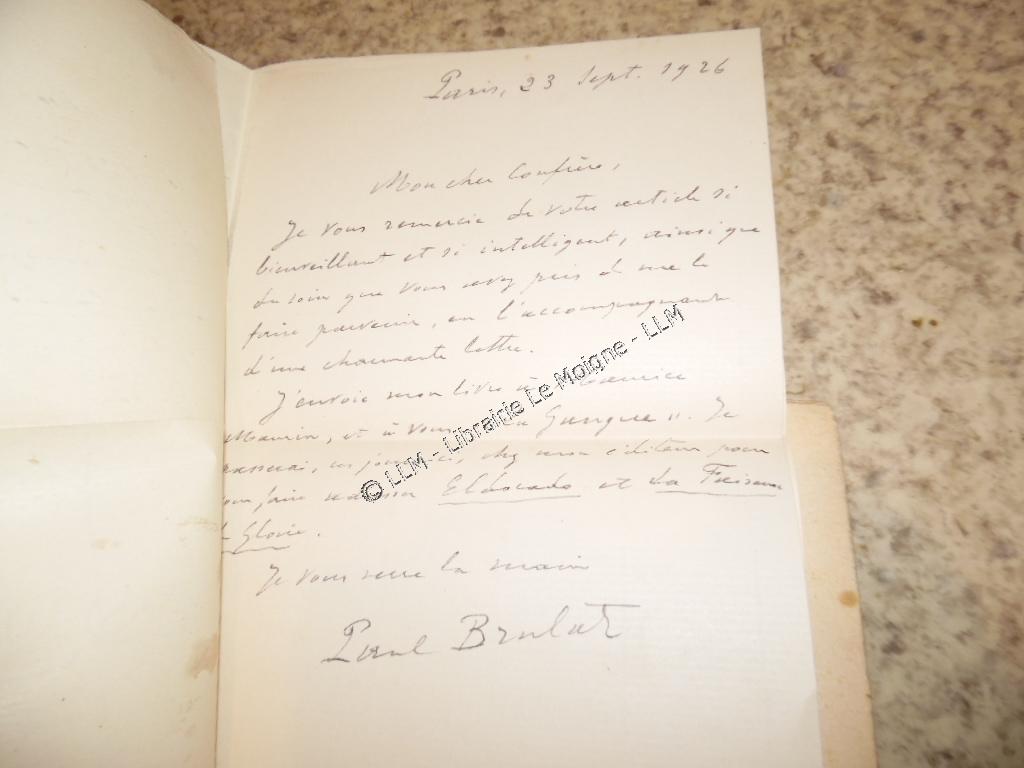 Paris, 23 Sept. 1926
Mon cher Confrère,
Je vous remercie de votre article si
bienveillant et si intelligent, ainsi que
du soin que vous avez pris de me le
faire parvenir, en l'accompagnant
d'une charmante lettre.
J'envoie mon livre à Maurice
Maurin, et à vous La Gangue ". Je
passerai, ces jours-ci, chez mon éditeur pour
vous faire Eldorado et La Faiseuse
de Gloire.
Je vous serre la main
Paul Brulat
© LLM - Librairie Le Moigne - LLM